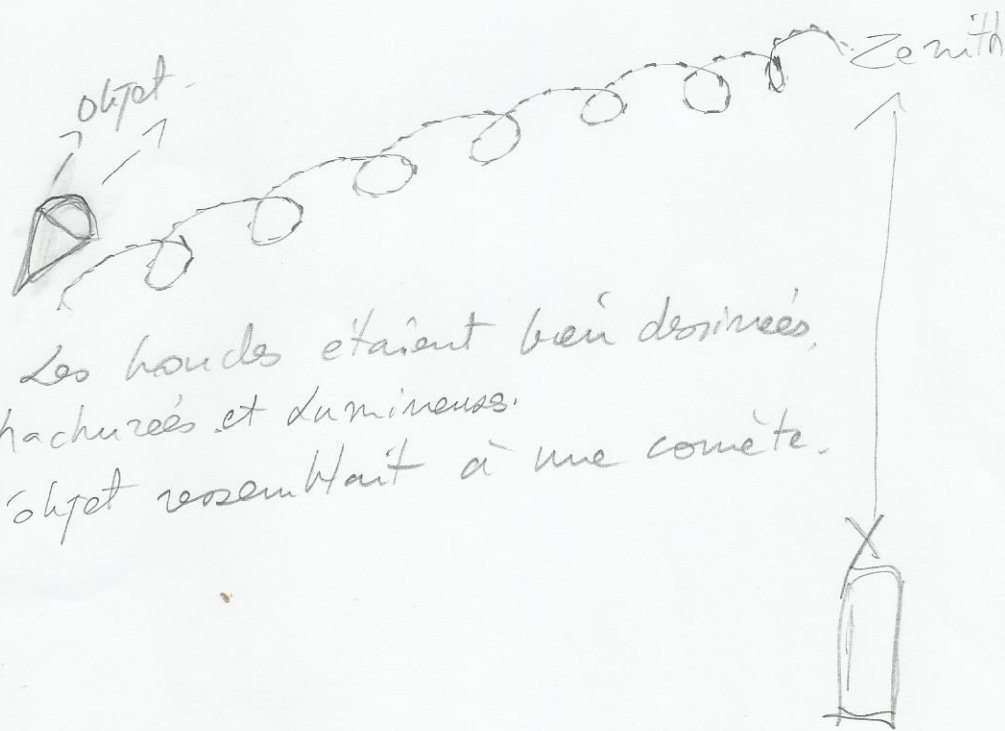 objet
Zenith
Les boucles étaient bien dessinées,
hachurées et lumineuses.
objet ressemblait à une comète.
X